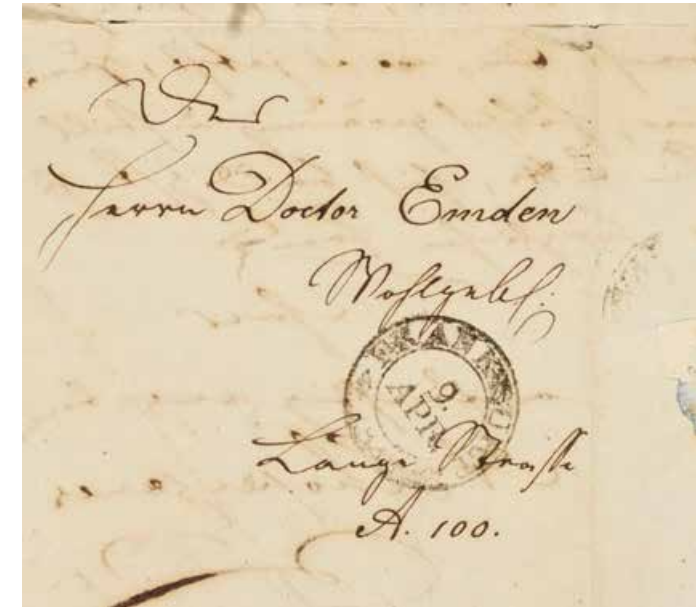 Des
Herrn Doctor Emden
Wohlgebl.
FRANKFU
9.
APR.
Lange Strasse
A. 100.